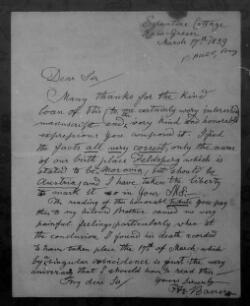 Eglantine Cottage
Kew Green
March 17th 1889
Dear Sir
Many thanks for the kind
loan of this (to me certainly very interesting
manuscript and very kind and honorable
expressions you composed it. I find
the facts all very correct, only the name
of our birth place Feldsperg which is
stated to be Moravia, but should be
Austria, and I have taken the liberty
to mark it so in your MS.
The reading of this honorable tribute you pay
this to my beloved Brother caused me very
painful feelings particularly when at
the conclusion I found his death recorded
to have taken place the 17th of March which
by singular coincidence is just the very
anniversary that I should have to read this
My dear Sir
yours sincerely
Bauer